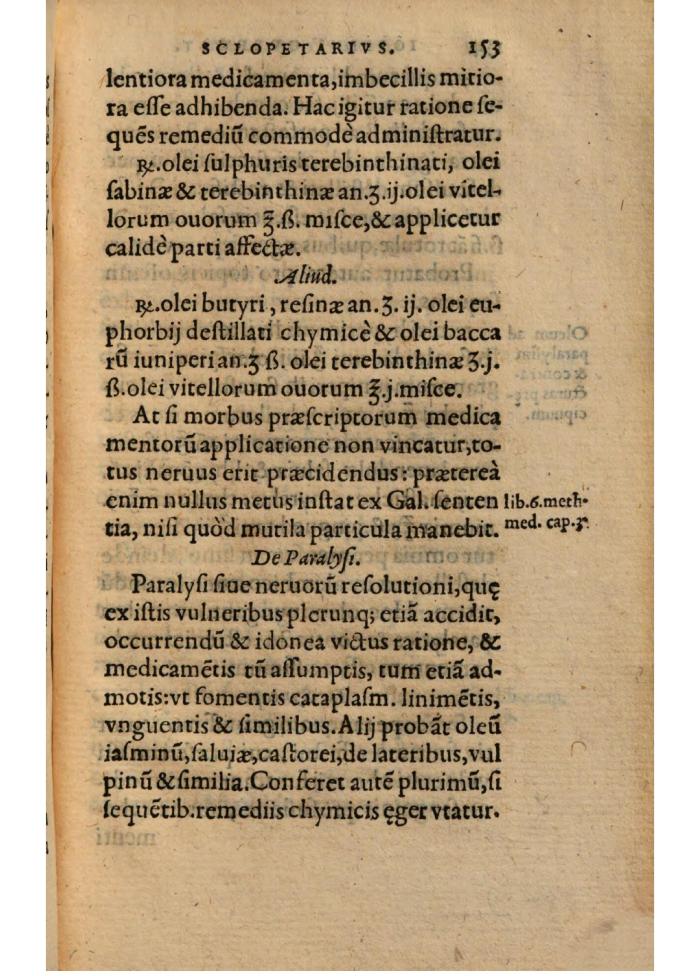 SCLOPETARIVS. 153
lentiora medicamenta,imbecillis mitio-
ra esse adhibenda. Hac igitur ratione se-
quẽs remediũ commodè administratur.
℞.olei sulphuris terebinthinati, olei
sabinæ & terebinthinæ an.ʒ.ij.olei vitel-
lorum ouorum ℥.ß. misce,& applicetur
calidè parti affectæ.
Aliud.
℞.olei butyri, resinæ an.ʒ. ij. olei eu-
phorbij destillati chymicè & olei bacca
rũ iuniperi an.ʒ ß. olei terebinthinæ ʒ.j.
ß.olei vitellorum ouorum ℥.j.misce.
At si morbus præscriptorum medica
mentorũ applicatione non vincatur,to-
tus neruus erit præcidendus: prætereà
enim nullus metus instat ex Gal. senten
tia, nisi quòd mutila particula manebit.
lib.6.meth.
med. cap.3.
De Paralysi.
Paralysi siue neruorũ resolutioni,quę
ex istis vulneribus plerunq; etiã accidit,
occurrendũ & idonea victus ratione, &
medicamẽtis tũ assumptis, tum etiã ad-
motis:vt fomentis cataplasm. linimẽtis,
vnguentis & similibus. Alij probãt oleũ
iasminũ,saluiæ,castorei,de lateribus,vul
pinũ & similia. Conferet autẽ plurimũ,si
sequẽtib.remediis chymicis ęger vtatur.